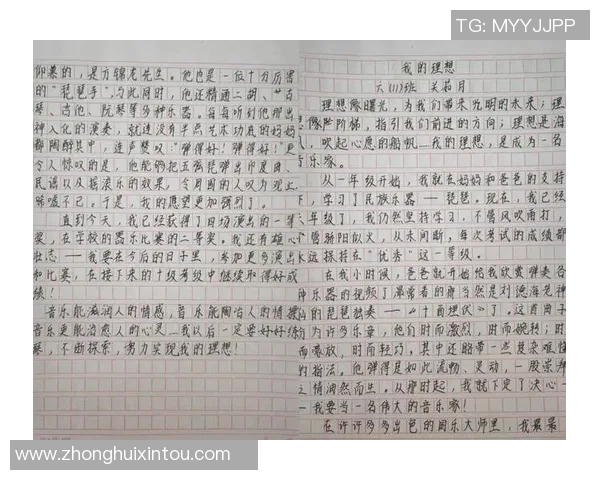 TG: MYYJJPP
我的理想
六(11)班 关茹月
理想像曙光，为我们带来光明的未来；理
像阶梯，指引我们前进的方向；理想是海
，吹起心愿的船帆……我的理想，是成为一名
音乐家。
从一年级开始，我就在妈妈和爸爸的支持
下，学习了民族乐器——琵琶。现在，我已经
年级了，我仍然坚持学习，不管风吹雨打，
管骄阳似火，从未间断，每次考试的成绩都
永远保持在“优秀”这一等级。
在我小时候，爸爸就开始给我欣赏弹奏各
种乐器的视频了。最常看的当然是刘德海老
的琵琶独奏——《十面埋伏》了。这首曲子
为许多乐章，他们时而激烈，时而婉转；时
而豪放，时而轻巧。其中还略带一些复杂难
的指法。他弹得是如此流畅、灵动，一股崇
之情油然而生。从那时起，我就下定了决心—
—我要当一名伟大的音乐家！
在许许多多出色的国乐大师里，我最最
仰慕的，是方锦龙先生。他也是一位十分厉害
的“琵琶手”，与此同时，他还精通二胡、古
琴、吉他、阮琴等多种乐器。每每听到他那出
神入化的演奏，就连没有半点艺术功底的妈妈
都陶醉其中，连声赞叹：“弹得好！弹得好！”更
令人惊叹的是，他能够把五弦琵琶弹出印度曲、
民谣以及摇滚乐的效果，令周围的人叹为观止，
唏嘘不已。于是，我的愿望更加强烈了。
直到今天，我已经获得了日场演出的一等
奖，在学校的器乐比赛的二等奖。我还有雄心
壮志——我要在今后的日子里，参加更多演出
和比赛，在接下来的十级考级中继续取得好成
绩！
音乐能滋润人的情感，音乐能陶冶人的情操
音乐更能治愈人的心灵……我以后一定要好好练
琴，不断探索，努力实现我的理想！
www.zhonghuixintou.com